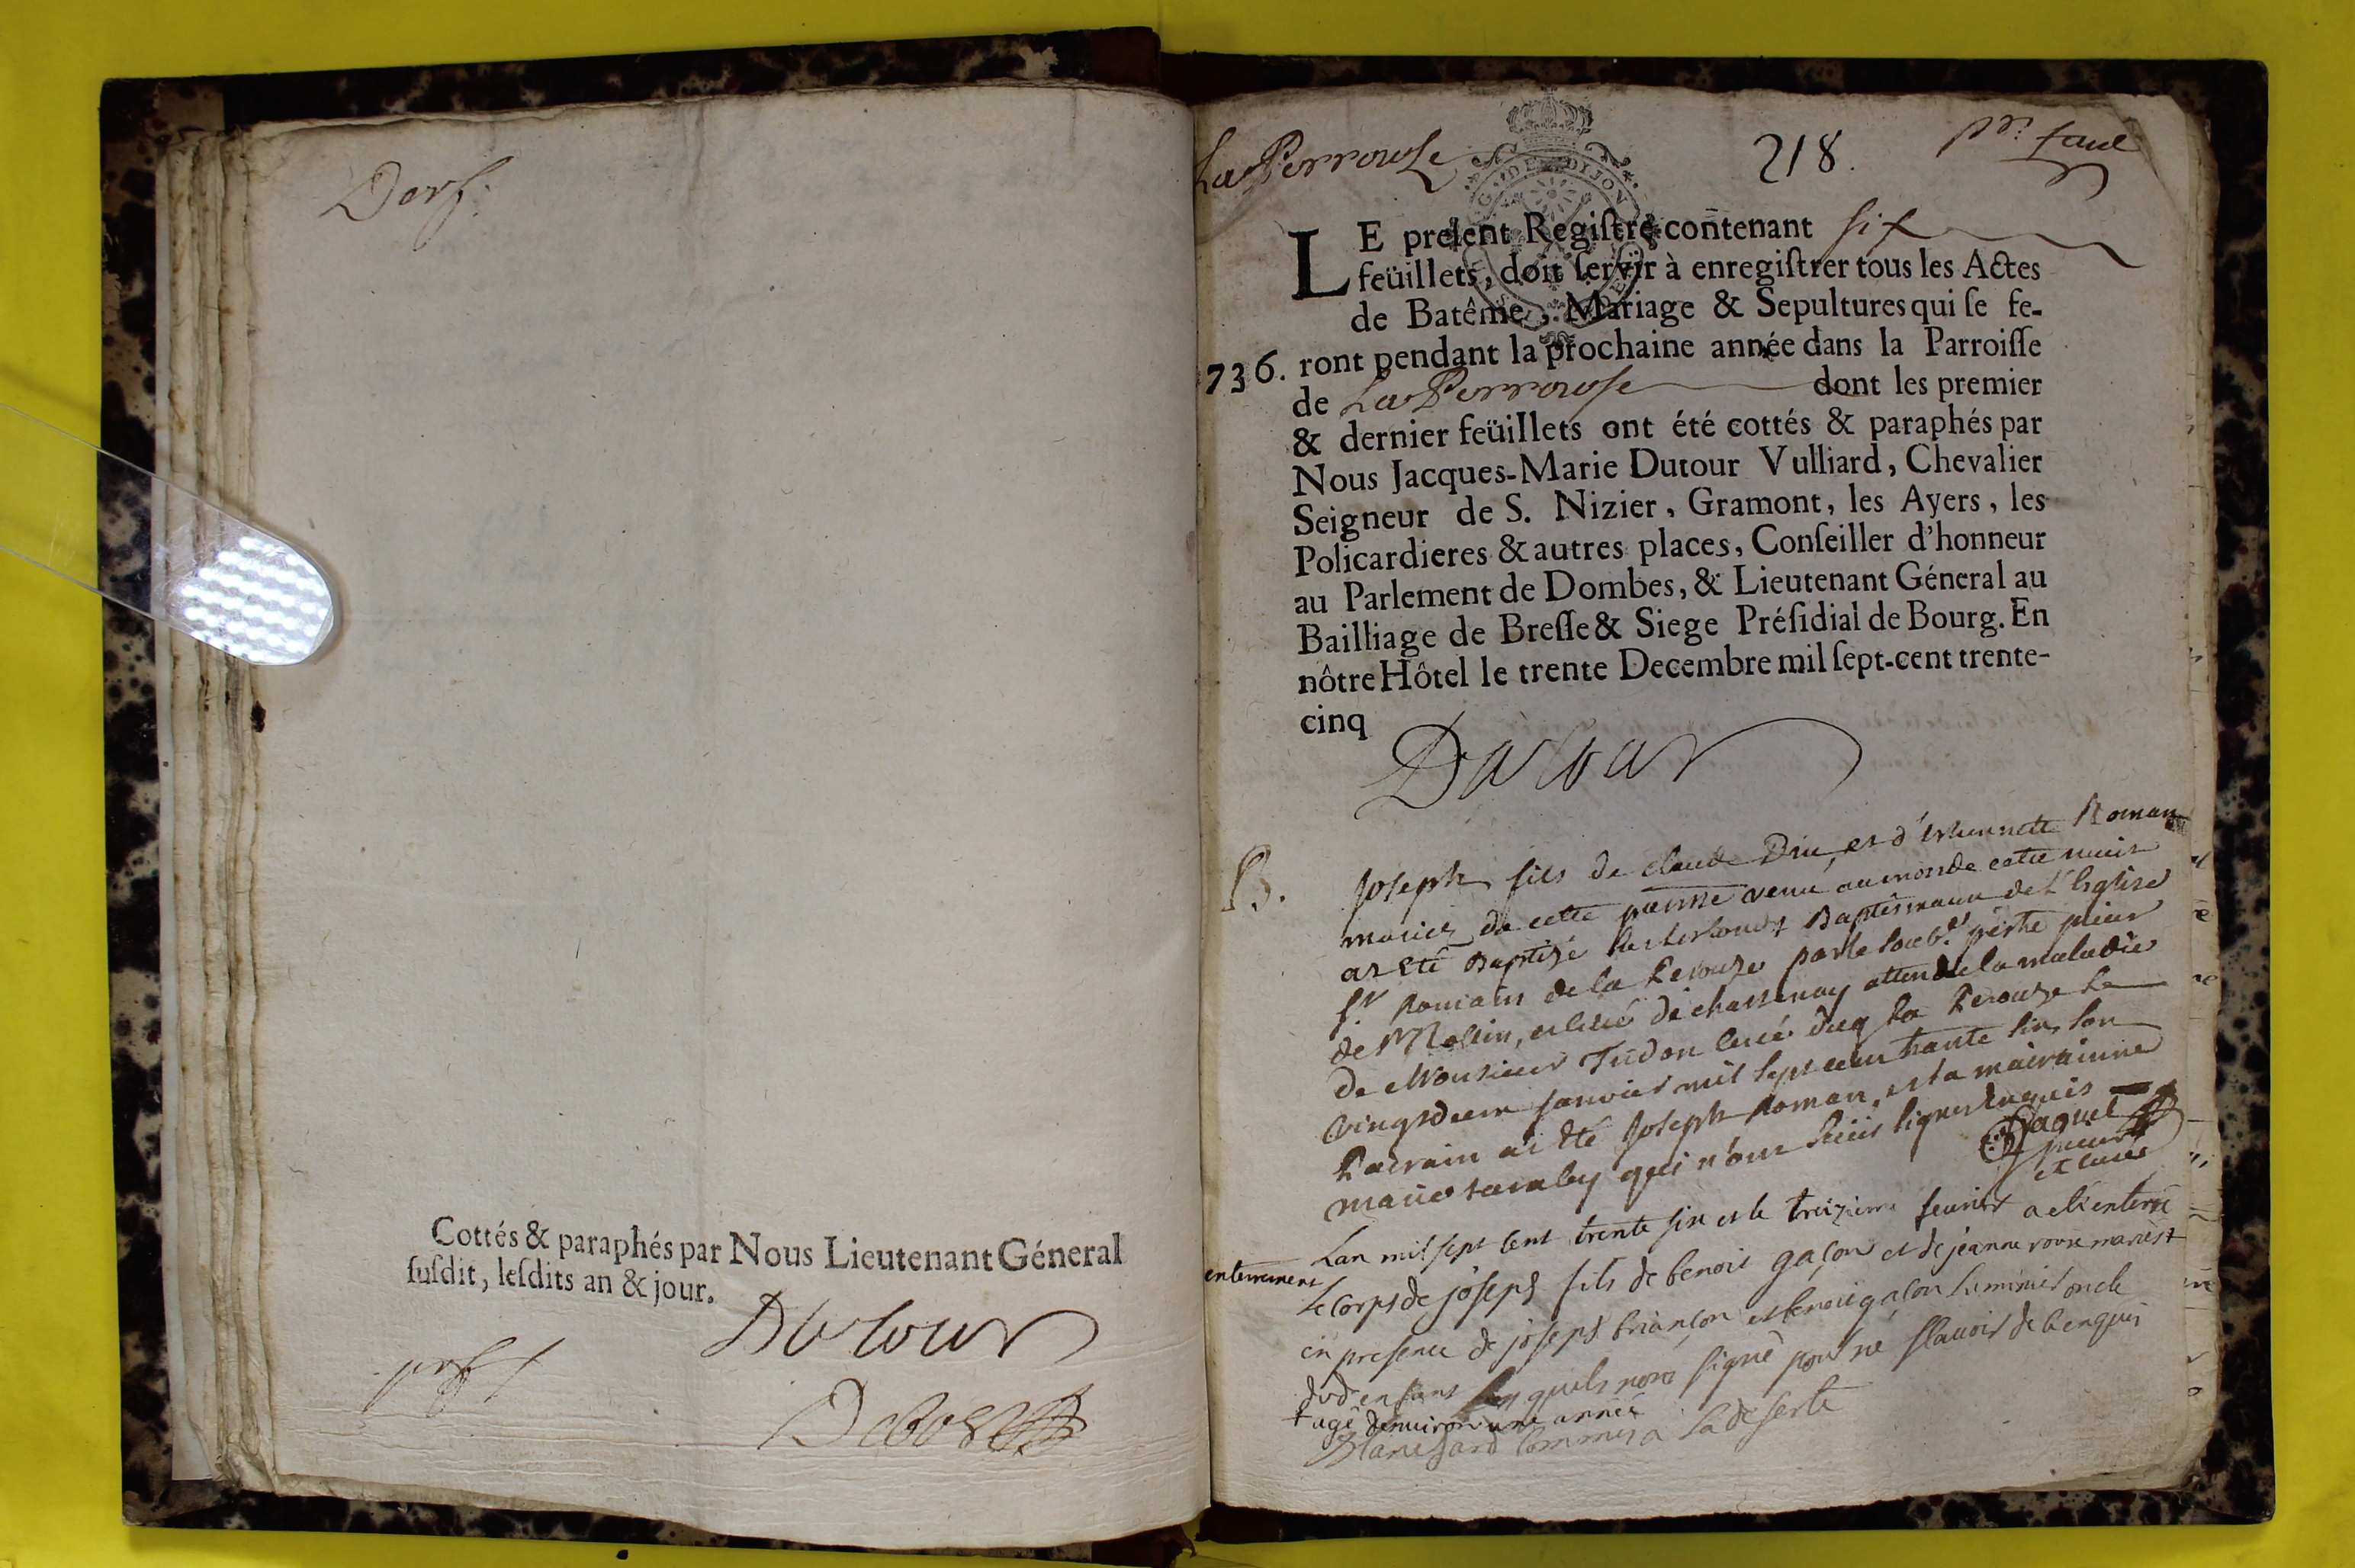 Cottés & paraphés par Nous Lieutenant Géneral
suſdit, leſdits an & jour.
Dutour
La Perrouse
218.
GEN. DE DIJON
LE preſent Regiſtre contenant six
feüillets, doit ſervir à enregiſtrer tous les Actes
de Batême, Mariage & Sepultures qui ſe fe-
ront pendant la prochaine année dans la Parroiſſe
736.
de La Perrouse dont les premier
& dernier feüillets ont été cottés & paraphés par
Nous Jacques-Marie Dutour Vulliard, Chevalier
Seigneur de S. Nizier, Gramont, les Ayers, les
Policardieres & autres places, Conſeiller d'honneur
au Parlement de Dombes, & Lieutenant Géneral au
Bailliage de Breſſe & Siege Préſidial de Bourg. En
nôtre Hôtel le trente Decembre mil ſept-cent trente-
cinq
Dutour
B.
Joseph fils de claude Dru, et d'Ethiennette Roman
mariez de cette venu au monde cette nuit
at eté Baptizé sur les fonds Baptismaux de L'Eglise
St Romain de la Perouze par le prieur
de Mollin, et curé de chastenay attendu la maladie
de Monsieur Tudon curé de la Perouze le
vingtdeux janvier mil sept cent trante six, son
Parrain at été Joseph Roman, et sa mairainne
qui n'ont sceus signer enquis
Paquel
prieur
et curé
enterrement
Lan mil sept cent trente six et le treizieme feurier a eté enterré
le corps de joseph fils de benoit gaçon et de jeanne mariés +
en presence de joseph briançon et benoit gaçon oncle
dud enfant lesquels nont signé pour ne sçavoir de ce enquis
+ agé denuiron une année
Blanchard commis a la deserte